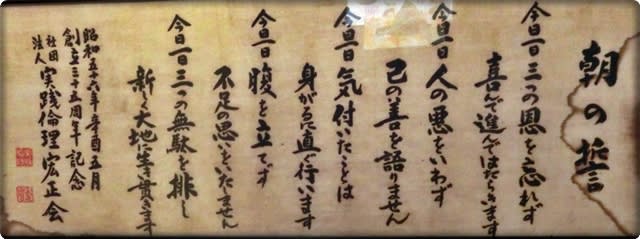 朝の誓
今日一日三つの恩を忘れず
喜んで進んではたらきます
今日一日人の悪をいわず
己の善を語りません
今日一日気付いたことは
身がるに直ぐ行います
今日一日腹を立てず
不足の思いをいたしません
今日一日三つの無駄を排し
新しく大地に生き貫きます
昭和五十六年辛酉五月
創立三十五周年記念
社団法人 実践倫理宏正会